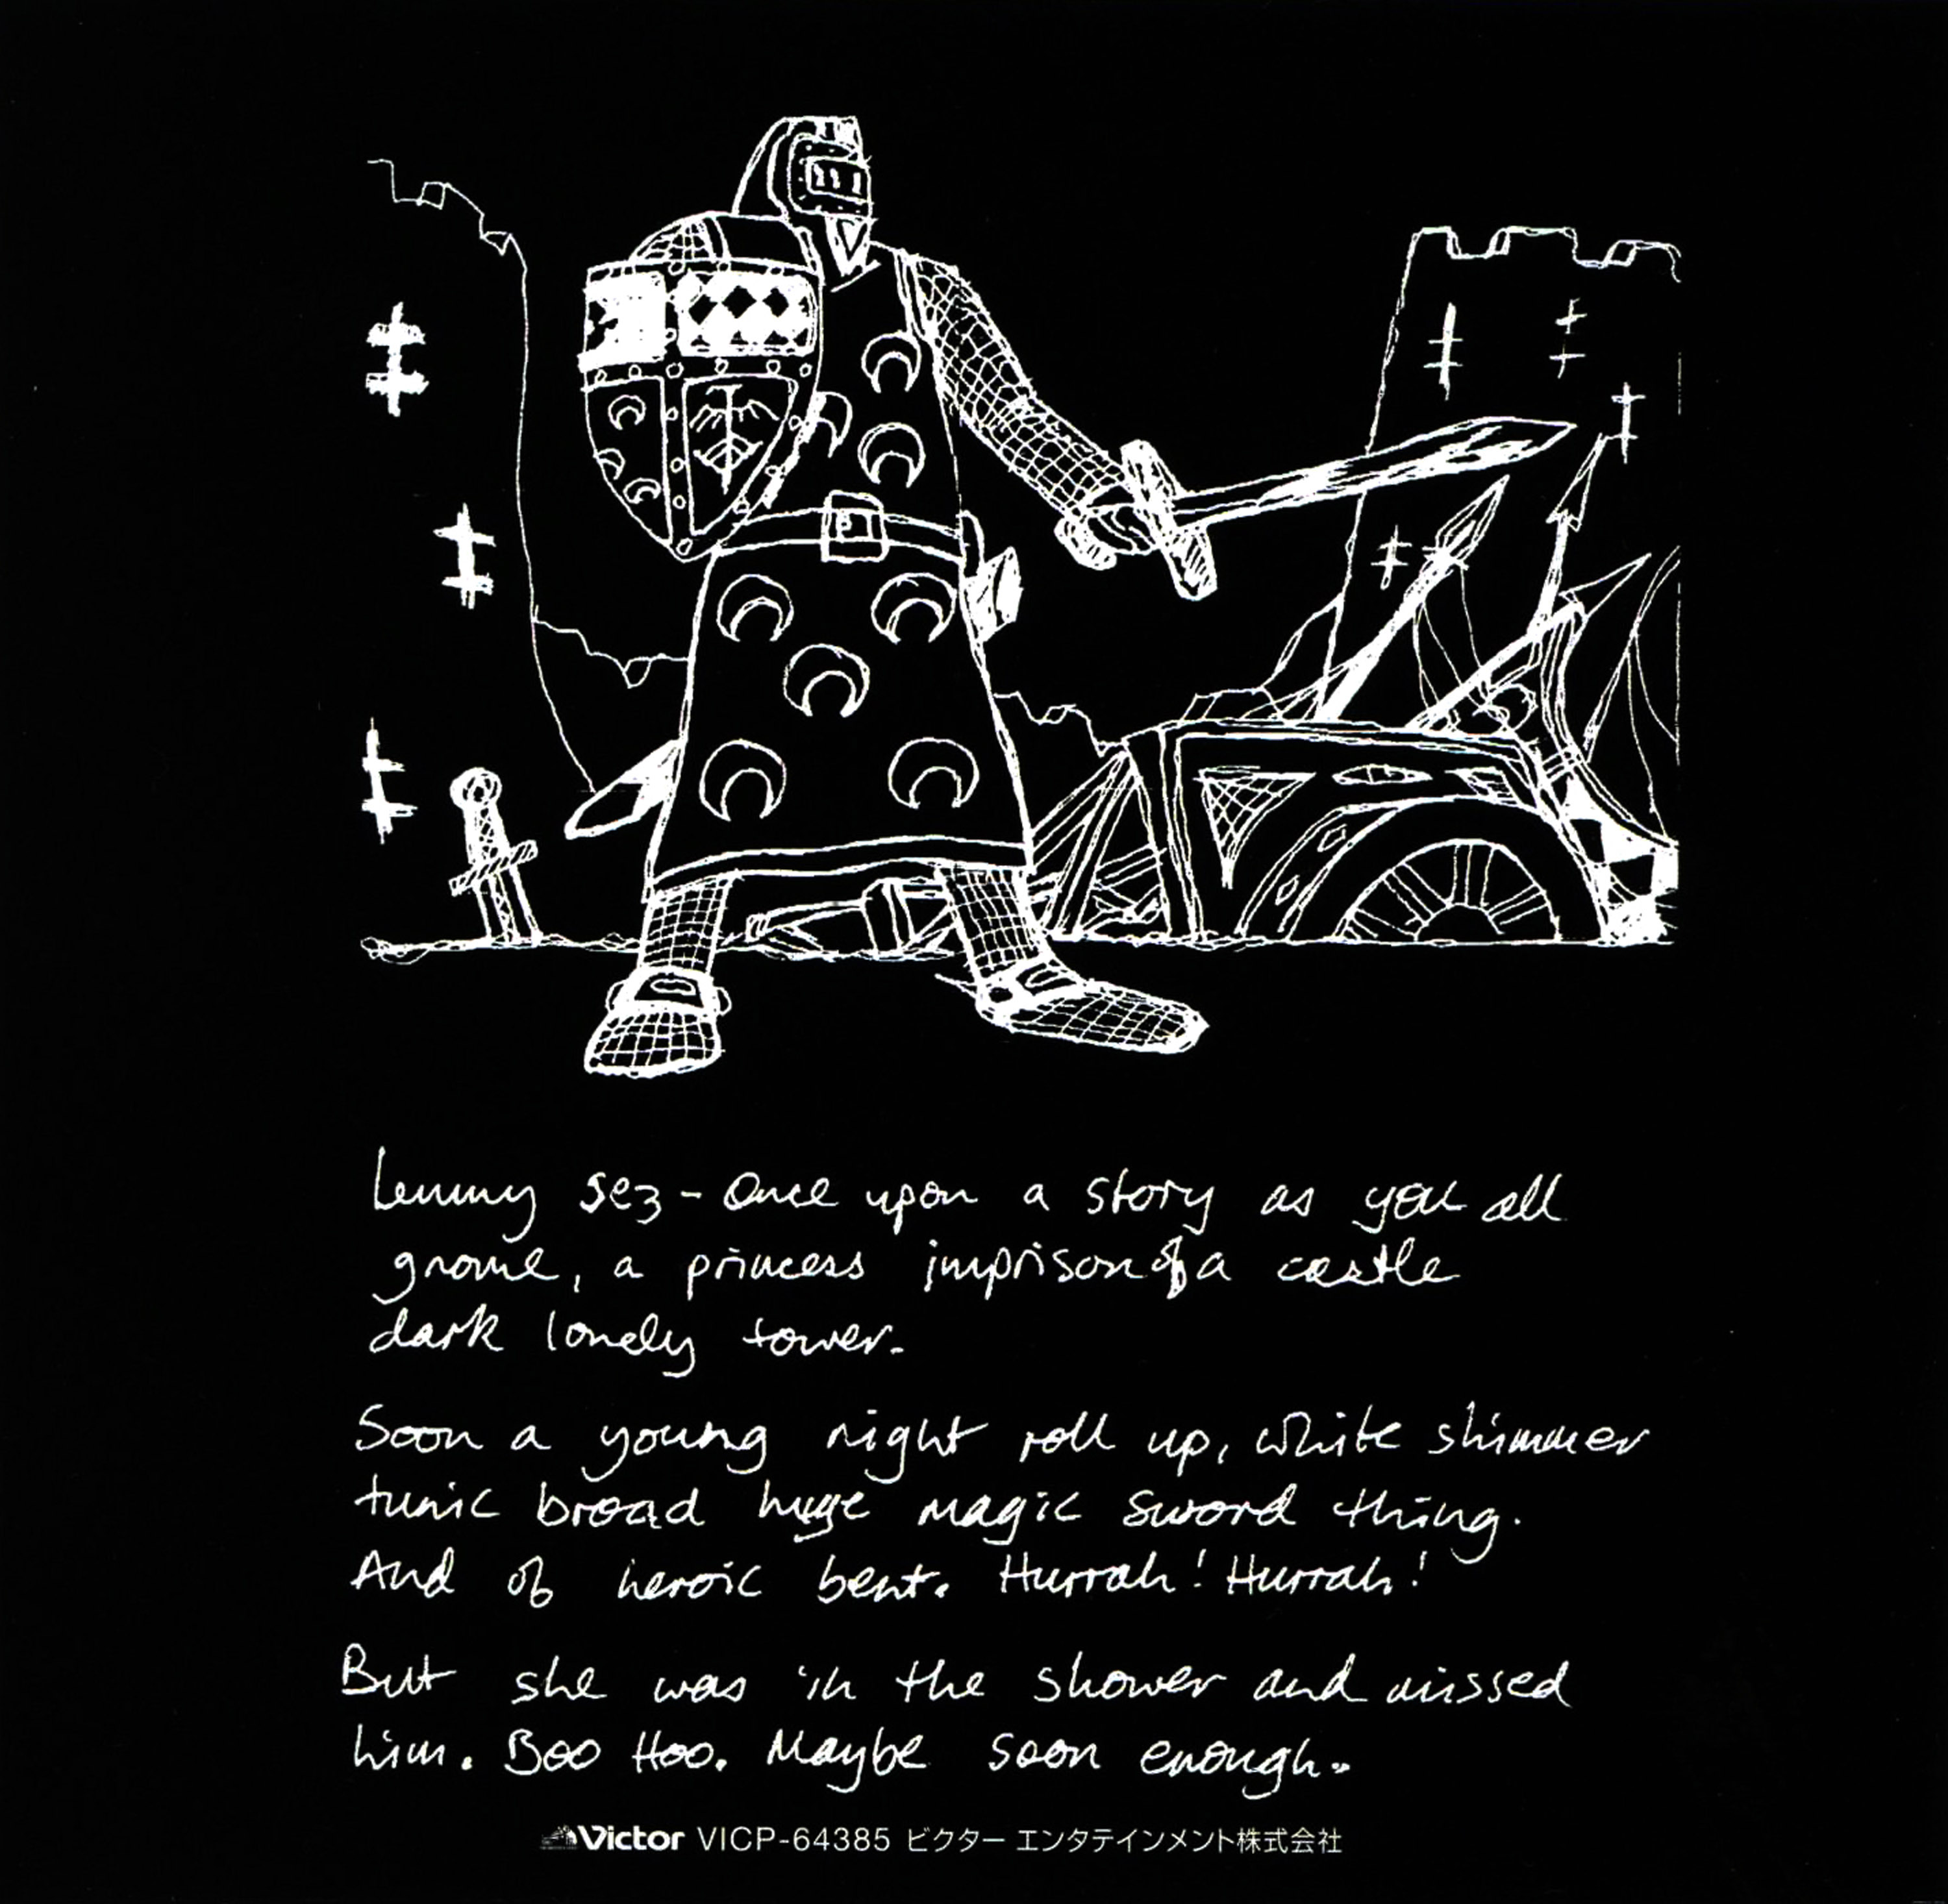 Lemmy sez - Once upon a story as you all
gnome, a princess imprison of a castle
dark lonely tower.
Soon a young night roll up, white shimmer
tunic broad huge magic sword thing.
And of heroic bent. Hurrah! Hurrah!
But she was in the shower and missed
him. Boo Hoo. Maybe soon enough.
Victor VICP-64385 ビクター エンタテインメント株式会社